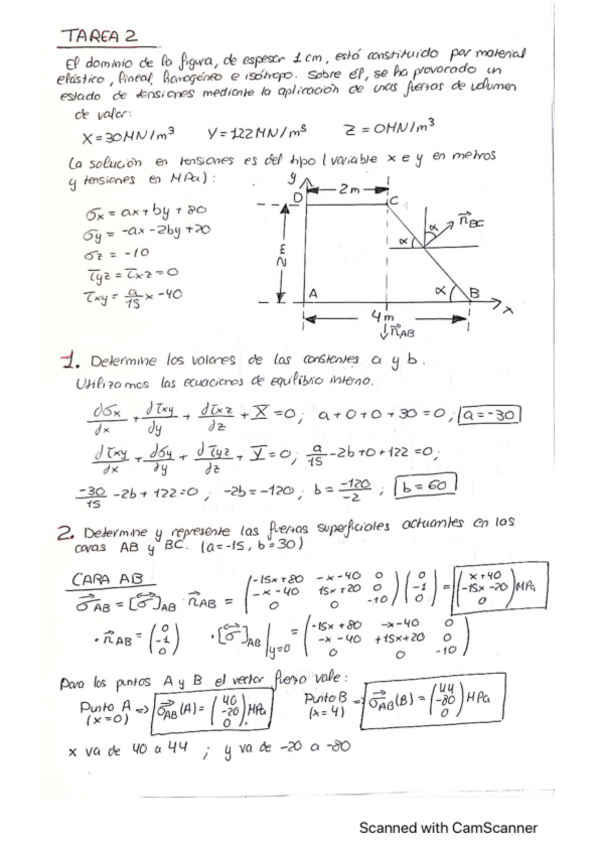 TAREA 2
El dominio de la figura, de espesor 1 cm, está constituido por material
elástico, lineal, homogéneo e isótropo. Sobre él, se ha provocado un
estado de tensiones mediante la aplicación de unas fuerzas de volumen
de valor:
X=30MN/m³ Y=122MN/m³ Z=0MN/m³
La solución en tensiones es del tipo (variable x e y en metros
y tensiones en MPa):
σx = ax+by+80
σy = -ax-2by+20
σz = -10
τyz = τxz = 0
τxy = a/15 x -40
y
D
2m
C
α
α
n⃗BC
2m
A
α
B
x
4m
n⃗AB
1. Determine los valores de las constantes a y b.
Utilizamos las ecuaciones de equilibrio interno.
dσx/dx + dτxy/dy + dτxz/dz + X̄ = 0; a+0+0+30=0; a=-30
dτxy/dx + dσy/dy + dτyz/dz + Ȳ = 0; a/15 -2b+0+122=0;
-30/15 -2b+122=0; -2b=-120; b = -120/-2; b=60
2. Determine y represente las fuerzas superficiales actuantes en las
caras AB y BC. (a=-15, b=30)
CARA AB
σ⃗AB = [σ⃗]AB · n⃗AB = (-15x+80 -x-40 0 / -x-40 15x+20 0 / 0 0 -10) (0 / -1 / 0) = (x+40 / -15x-20 / 0) MPa
· n⃗AB = (0 / -1 / 0) · [σ⃗]AB |y=0 = (-15x+80 -x-40 0 / -x-40 +15x+20 0 / 0 0 -10)
Para los puntos A y B el vector fuerza vale:
Punto A (x=0) ⇒ σ⃗AB(A) = (40 / -20 / 0) MPa Punto B (x=4) ⇒ σ⃗AB(B) = (44 / -80 / 0) MPa
x va de 40 a 44 ; y va de -20 a -80
Scanned with CamScanner